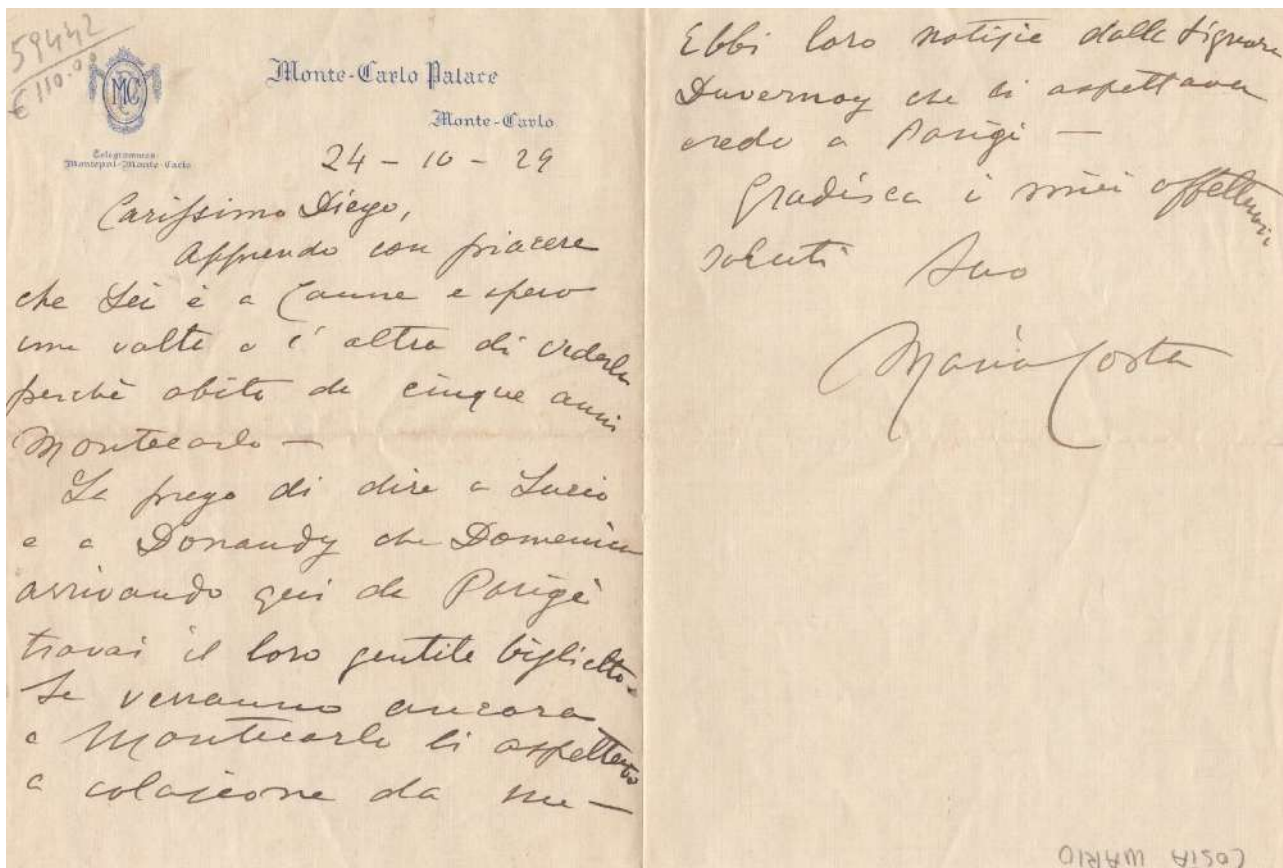 59442
€ 110.00
MC
Monte-Carlo Palace
Monte-Carlo
Telegrammes
Montepal-Monte-Carlo
24 - 10 - 29
Carissimo Diego,
Apprendo con piacere
che Lei è a Canne e spero
una volta o l'altra di vederla
perchè abito da cinque anni
Montecarlo —
La prego di dire a Lucio
e a Donaudy che Domenica
arrivando qui da Parigi
trovai il loro gentile biglietto.
Se verranno ancora
a Montecarlo li aspetterò
a colazione da me —
Ebbi loro notizie dalla Signora
Duvernoy che li aspettava
credo a Parigi —
Gradisca i miei affettuosi
saluti Suo
Mario Costa
COSTA MARIO